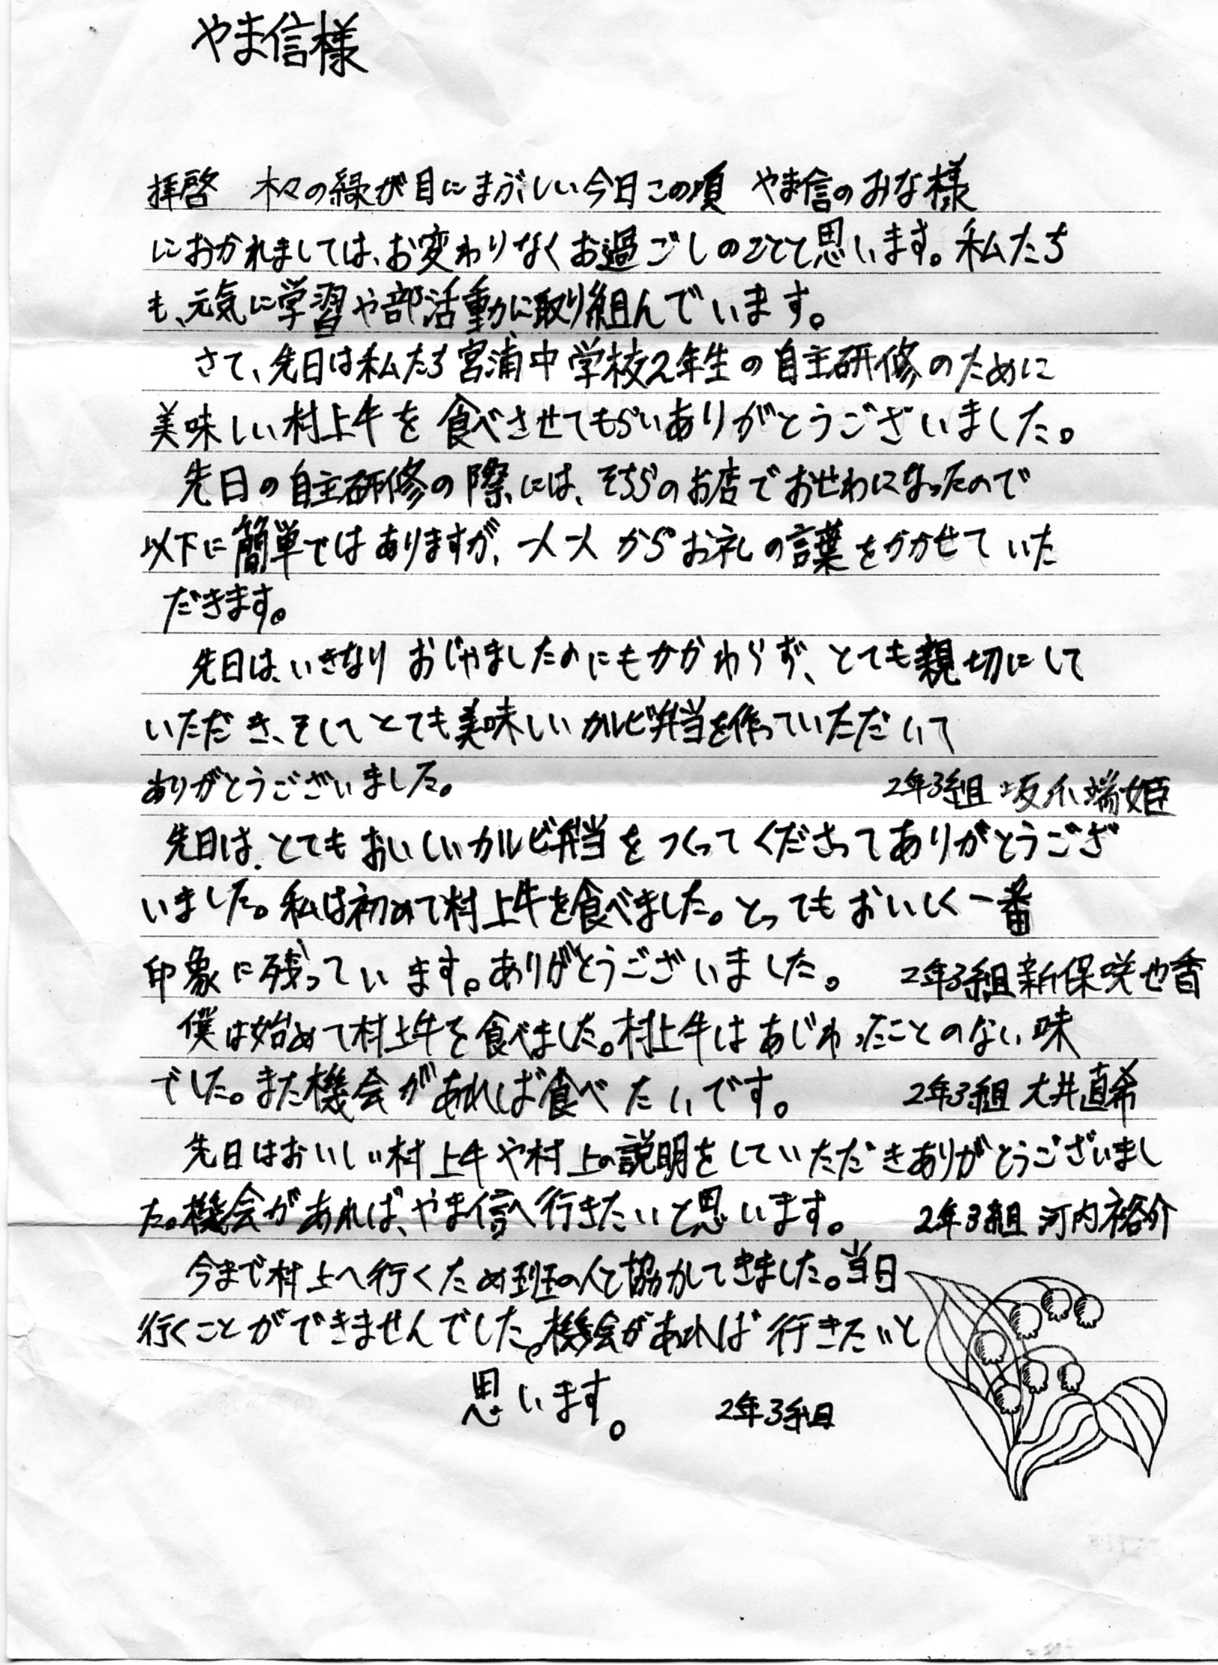 やま信様
拝啓　木々の緑が目にまぶしい今日この頃　やま信のみな様
におかれましては、お変わりなくお過ごしのことと思います。私たち
も、元気に学習や部活動に取り組んでいます。
さて、先日は私たち宮浦中学校2年生の自主研修のために
美味しい村上牛を食べさせてもらいありがとうございました。
先日の自主研修の際には、そちらのお店でおせわになったので
以下に簡単ではありますが、一人一人からお礼の言葉をかかせていた
だきます。
先日は、いきなりおじゃましたのにもかかわらず、とても親切にして
いただき、そしてとても美味しいカルビ弁当を作っていただいて
ありがとうございました。　2年3組 坂爪瑞姫
先日は、とてもおいしいカルビ弁当をつくってくださってありがとうござ
いました。私は初めて村上牛を食べました。とってもおいしく一番
印象に残っています。ありがとうございました。　2年3組 新保咲也香
僕は始めて村上牛を食べました。村上牛はあじわったことのない味
でした。また機会があれば食べたいです。　2年3組 大井直希
先日はおいしい村上牛や村上の説明をしていただきありがとうございまし
た。機会があれば、やま信へ行きたいと思います。　2年3組 河内裕介
今まで村上へ行くため班の人と協力してきました。当日
行くことができませんでした。機会があれば行きたいと
思います。　2年3組